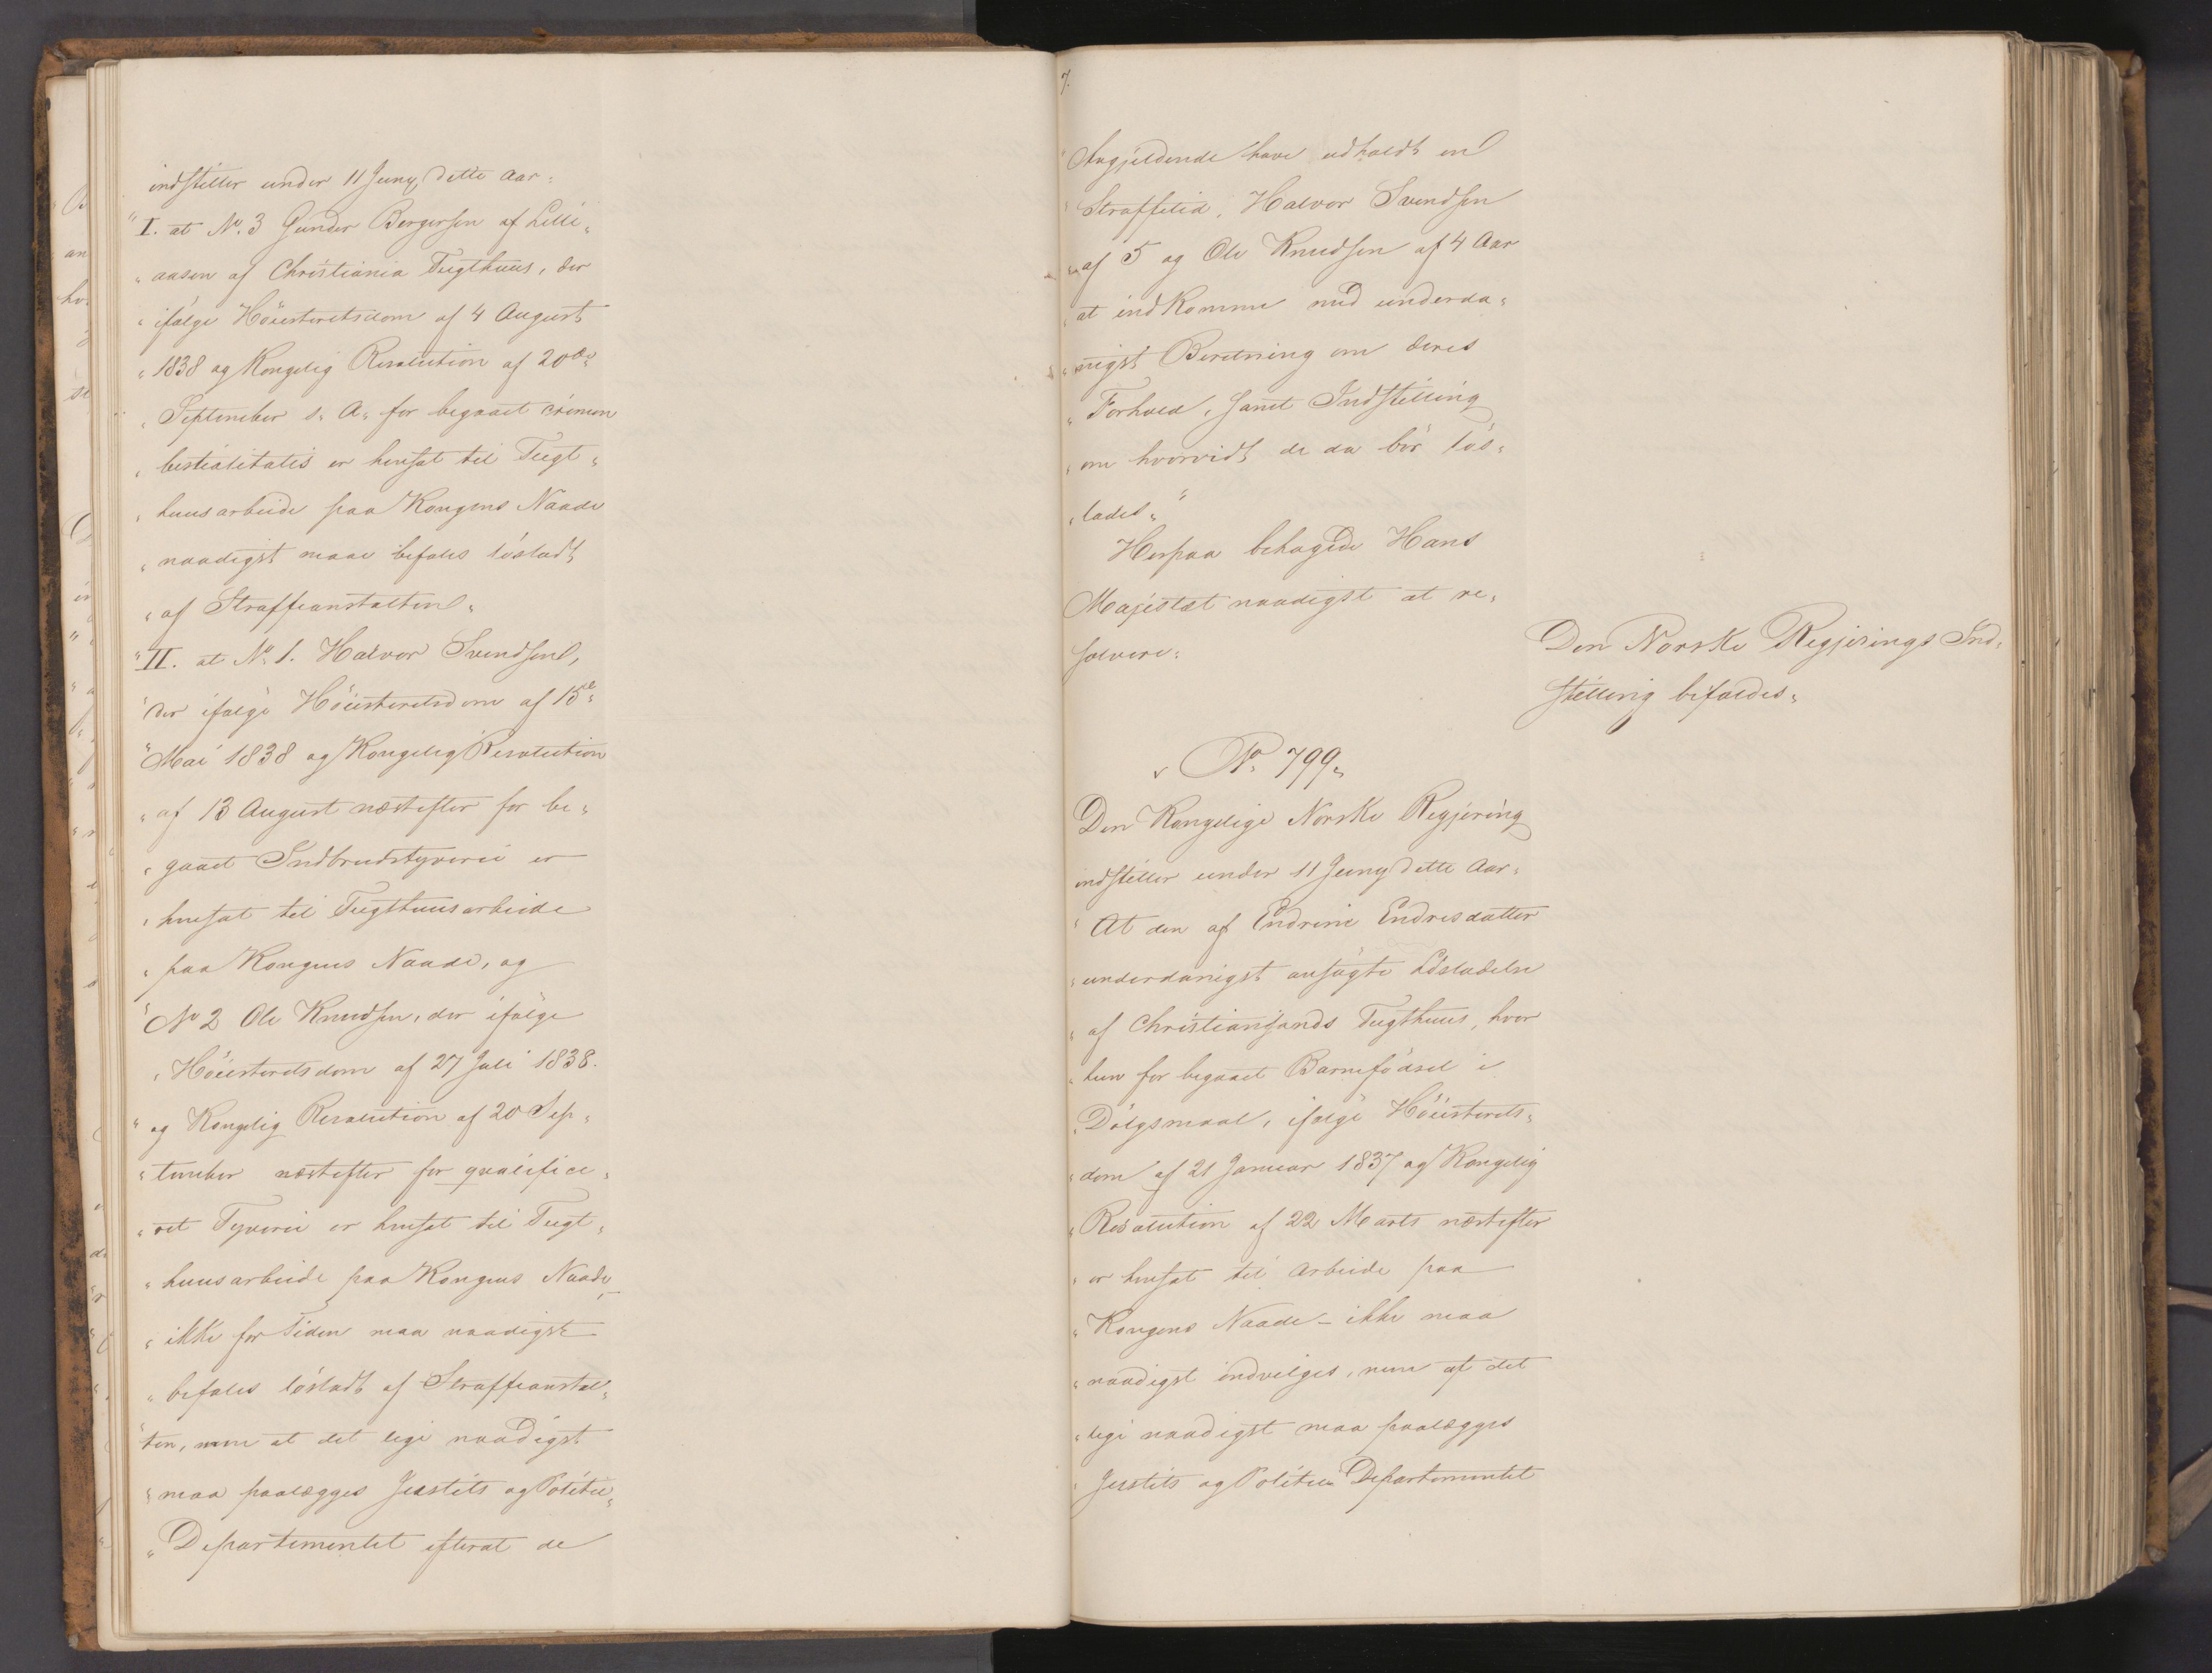 indstiller under 11 Juny dette Aar:
"I. at No. 3 Gunder Bergersen af Lille„
„aasen af Christiania Tugthuus, der
„ifølge Höiesteretsdom af 4 August
„1838 og Kongelig Resolution af 20de
„September s. A. for begaaet crimen
„bestialitatis er hensat til Tugt„
„huusarbeide paa Kongens Naade
„naadigst maae befales løsladt
„af Straffeanstalten„
"II. at No. 1. Halvor Svendsen,
"der ifølge Höiesteretsdom af 15de
"Mai 1838 og Kongelig Resolution
„af 13 August næstefter for be„
„gaaet Indbrudstyverie er
„hensat til Tugthuusarbeide
„paa Kongens Naade, og
"No 2 Ole Knudsen, der ifölge
„Höiesteretsdom af 27 Juli 1838.
"og Kongelig Resolution af 20 Sep„
„tember næstefter for qvalifice„
„ret Tyverie er hensat til Tugt„
„huusarbeide paa Kongens Naade,
„ikke for Tiden maa naadigst
„befales løsladt af Straffeanstal„
"ten, men at det lige naadigst
„maa paalægges Justits og Politie„
„Departementet efterat de
7.
"Angjeldende have udholdt en
"Straffetid, Halvor Svendsen
„af 5 og Ole Knudsen af 4 Aar
„at indkomme med underda„
„nigst Beretning om deres
„Forhold, samt Indstilling
„om hvorvidt de da bör lös„
„lades„"
Herpaa behagede Hans
Majestæt naadigst at re„
solvere:
Den Norske Regjerings Ind„
stilling bifaldes„
No. 799„
Den Kongelige Norske Regjering
indstiller under 11 Juny dette Aar„
"At den af Endrine Endresdatter
„underdanigst ansøgte Løsladelse
„af Christiansands Tugthuus, hvor
„hun for begaaet Barnefödsel i
„Dölgsmaal, ifølge Höiesterets„
„dom af 21 Januar 1837 og Kongelig
„Resolution af 22 Marts næstefter
„er hensat til Arbeide paa
„Kongens Naade – ikke maa
„naadigst indvilges, men at det
„lige naadigst maa paalægges
„Justits og Politie Departementet